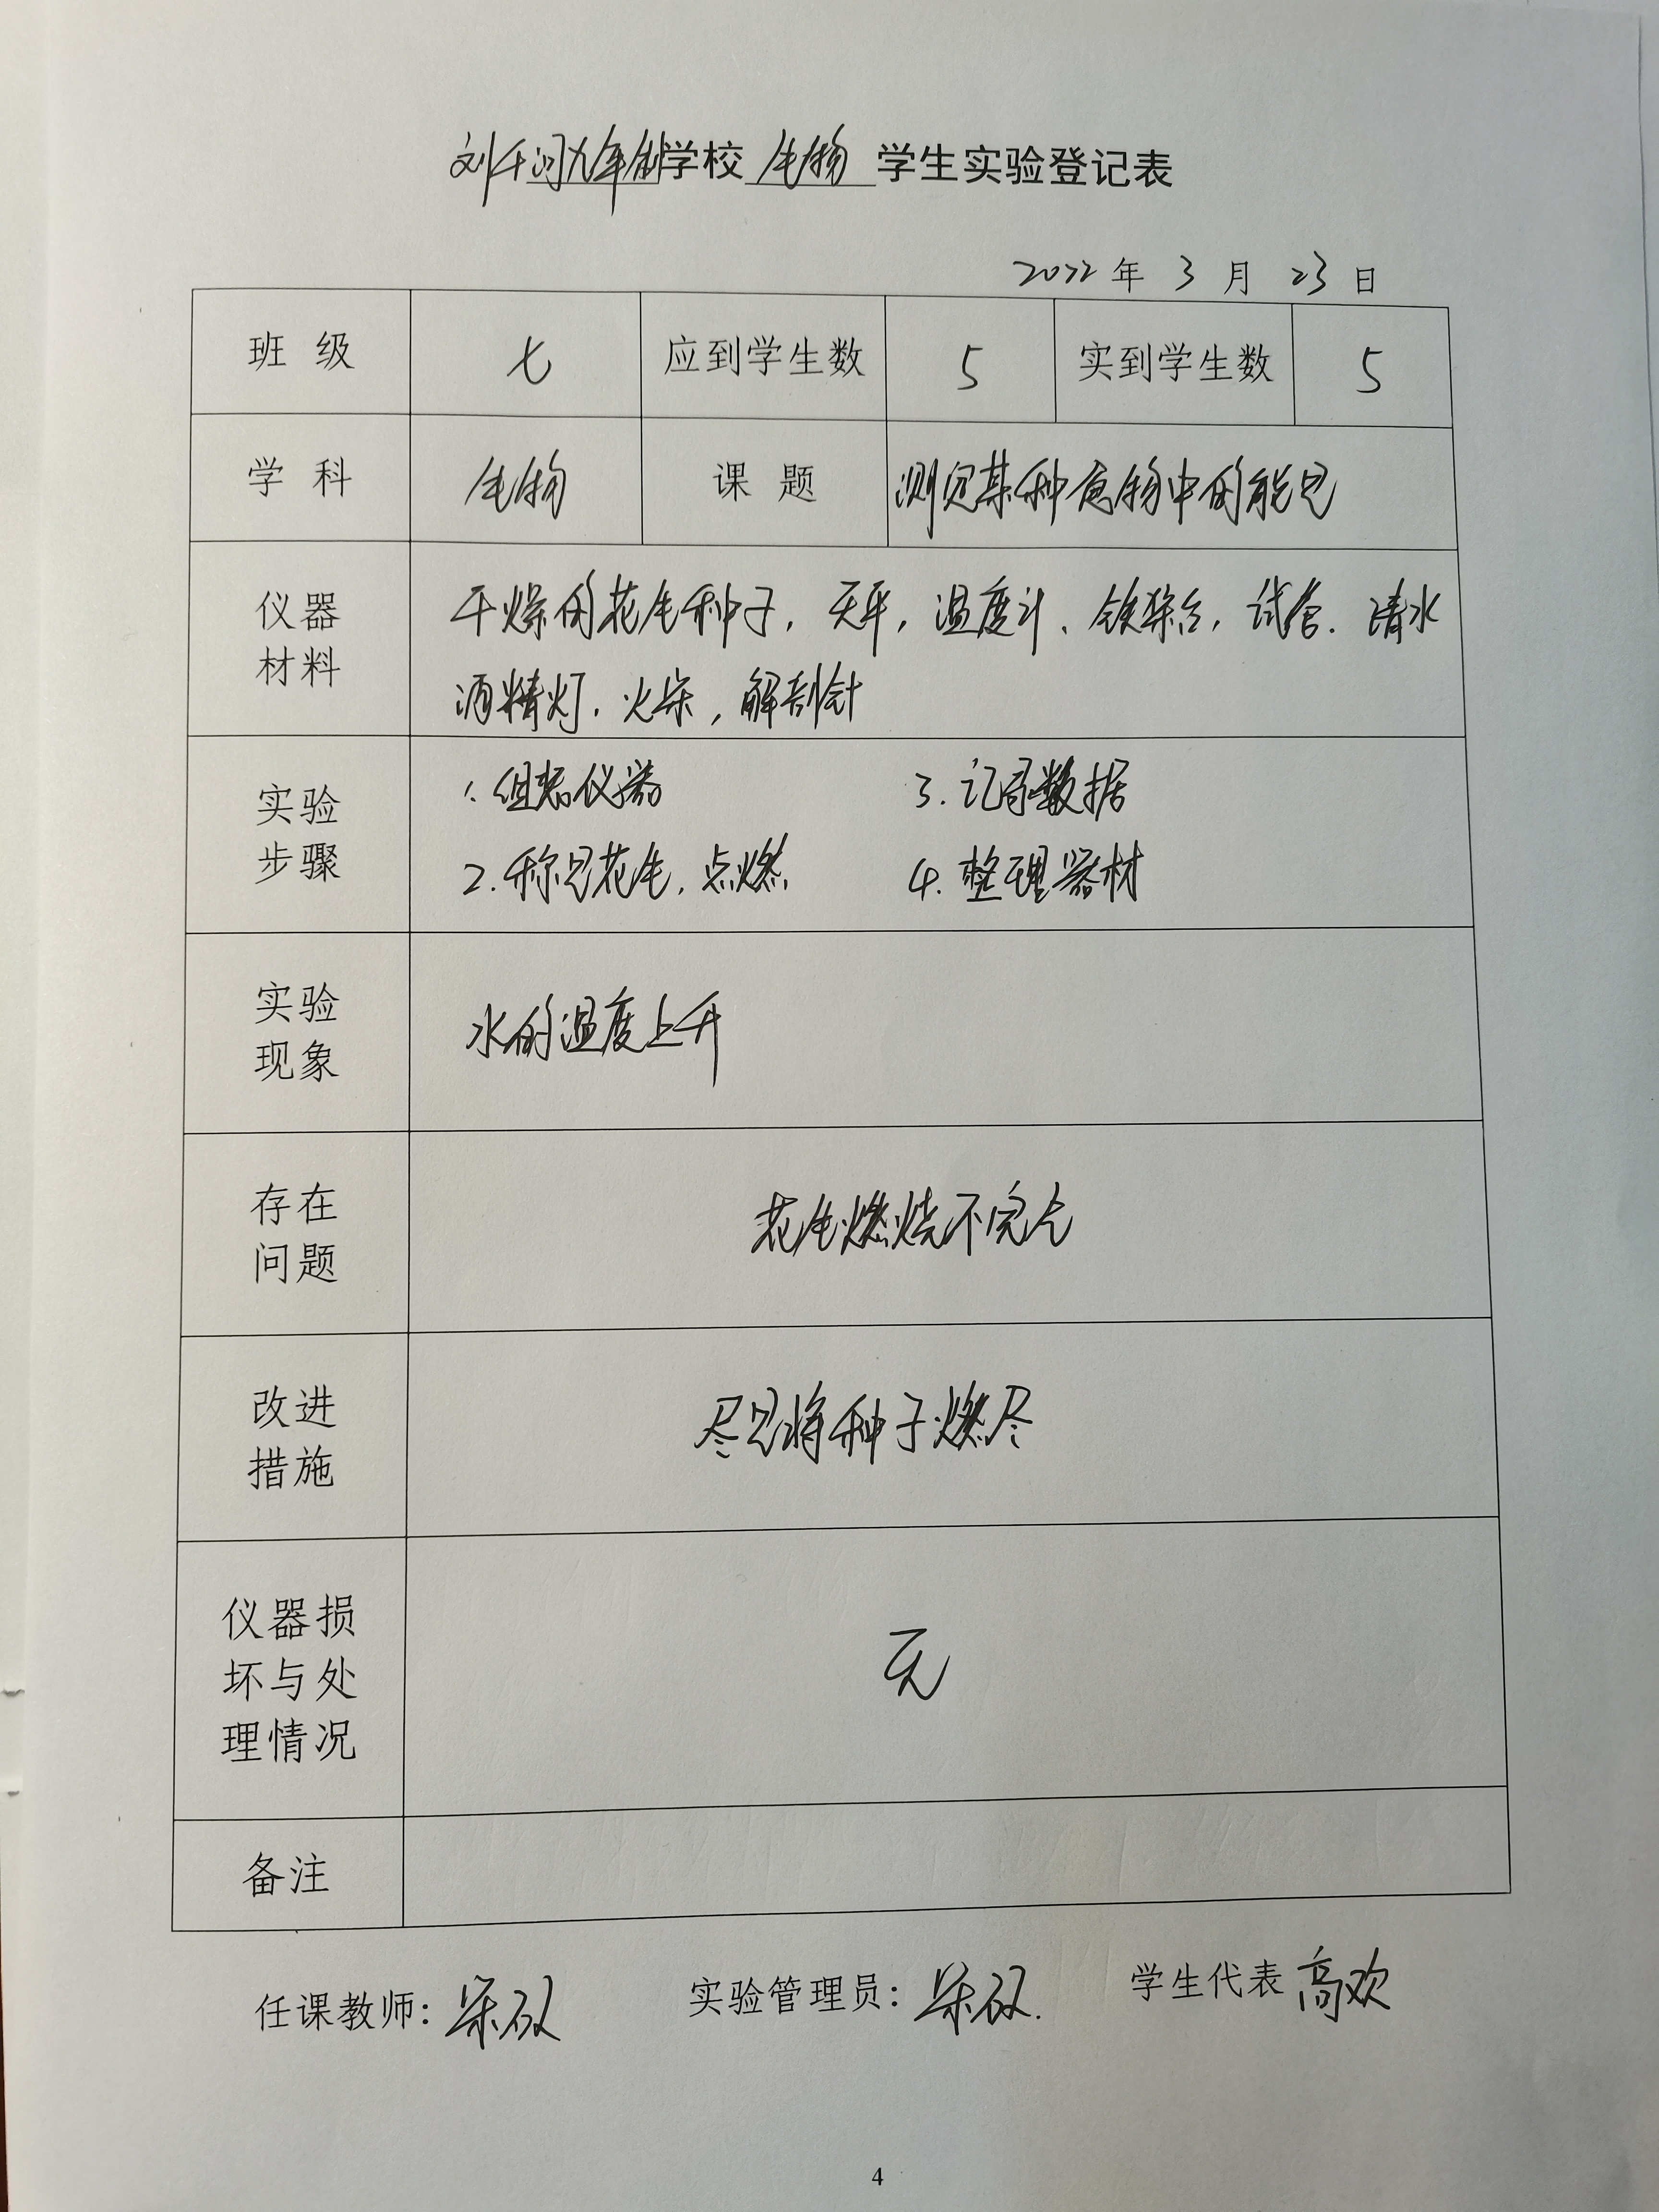 刘千河九年制学校 生物 学生实验登记表
2022 年 3 月 23 日
班 级 七 应到学生数 5 实到学生数 5
学 科 生物 课 题 测定某种食物中的能量
仪器材料 干燥的花生种子, 天平, 温度计、铁架台, 试管. 清水
酒精灯. 火柴, 解剖针
实验步骤 1. 组装仪器 3. 记录数据
2. 称量花生, 点燃 4. 整理器材
实验现象 水的温度上升
存在问题 花生燃烧不完全
改进措施 尽量将种子燃尽
仪器损坏与处理情况 无
备注
任课教师: 实验管理员: 学生代表 高欢
4